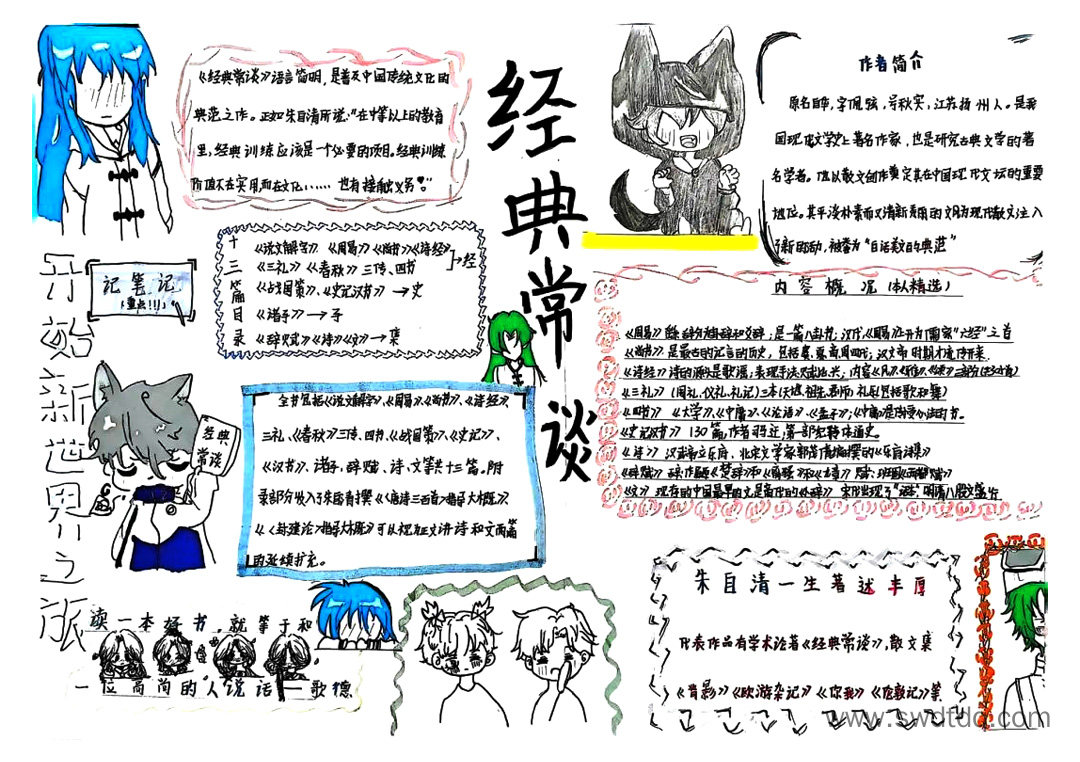 经典常谈
《经典常谈》语言简明,是普及中国传统文化的
典范之作。正如朱自清所说:"在中等以上的教育
里,经典训练应该是一个必要的项目。经典训练
价值不在实用,而在文化……也有接触义务。"
作者简介
原名自华,字佩弦,号秋实,江苏扬州人。是我
国现代文学史上著名作家,也是研究古典文学的著
名学者。他以散文创作奠定其在中国现代文坛的重要
地位。其平淡朴素而又清新秀丽的文风为现代散文注入
了新的活动,被誉为"白话
典范"
十三篇目录
《说文解字》《周易》《尚书》《诗经》
《三礼》《春秋》三传、四书
→经
《战国策》、《史记汉书》→史
《诸子》→子
《辞赋》《诗》《文》→集
记笔记
(重点!!!)
开始新世界之旅
经典
常谈
全书包括《说文解字》、《周易》、《尚书》、《诗经》、
三礼、《春秋》三传、四书、《战国策》、《史记》、
《汉书》、诸子、辞赋、诗、文等共十三篇。附
录部分收入了朱自清撰《〈唐诗三百首〉指导大概》、
可以视征文讲诗和文两篇
的延续扩充。
内容概况(本人精选)
《周易》
是一篇八卦书;汉代《周易》上升为儒家"六经"之首
《尚书》是最古的记言的历史,包括虞、夏、商、周四代;汉文帝时期才流传开来.
《诗经》诗的源头是歌谣;表现手法赋、比、兴;
《三礼》(周礼、仪礼、礼记)
《四书》《大学》、《中庸》、《论语》、《孟子》;
《史记汉书》130篇,作者司马迁,第一部纪传体通史。
《诗》汉武帝立乐府,北宋文学家郭茂倩编撰的《乐府诗集》
《辞赋》
《文》现存的中国最早的文是商代的卜辞
朱自清一生著述丰厚
代表作品有学术论著《经典常谈》,散文集
《背影》《欧游杂记》《你我》《伦敦记》等
读一本好书,就等于和
一位高尚的人说话—歌德
www.swdtdq.com